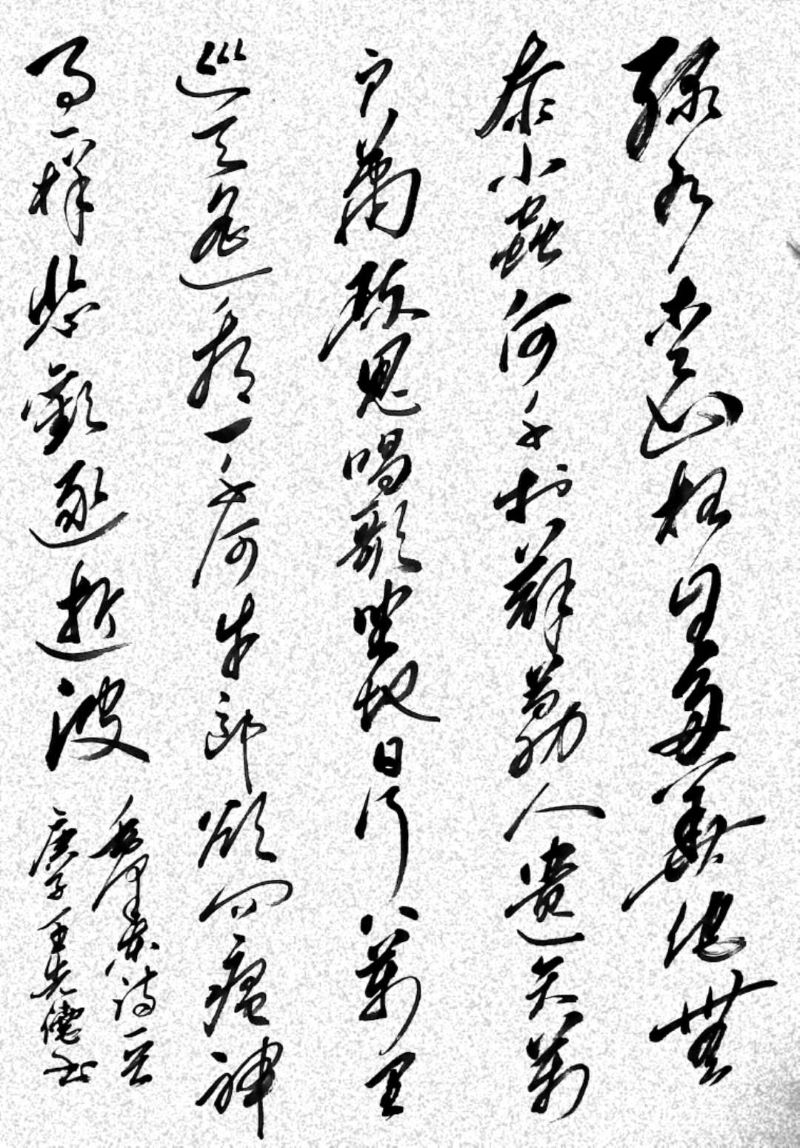 綠水青山枉自多華佗無
奈小蟲何千村薜荔人遺矢萬
户蕭疏鬼唱歌坐地日行八萬里
巡天遥看一千河牛郎欲问瘟神
事一样悲歡逐逝波
毛澤東诗一首
庚子王先书